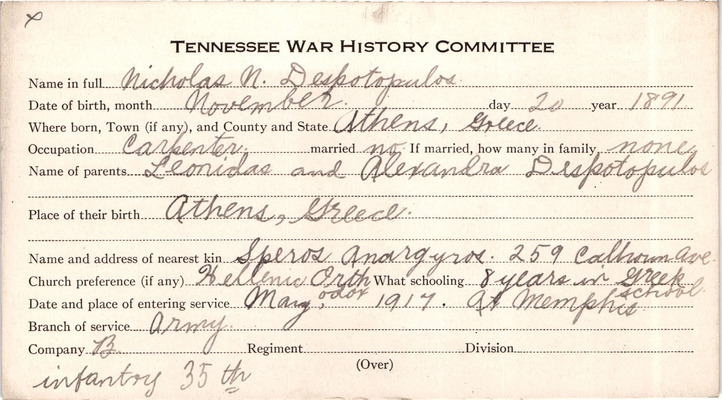 x
TENNESSEE WAR HISTORY COMMITTEE
Name in full Nicholas N. Despotopulos
Date of birth, month November day 20 year 1891
Where born, Town (if any), and County and State Athens, Greece
Occupation Carpenter married no. If married, how many in family none
Name of parents Leonidas and Alexandra Despotopulos
Place of their birth Athens, Greece.
Name and address of nearest kin Speros Anargyros. 259 Calhoun Ave
Church preference (if any) Hellenic Orthodox What schooling 8 years in Greek school
Date and place of entering service May, 1917. At Memphis
Branch of service Army.
Company B Regiment Division
(Over)
infantry 35 th